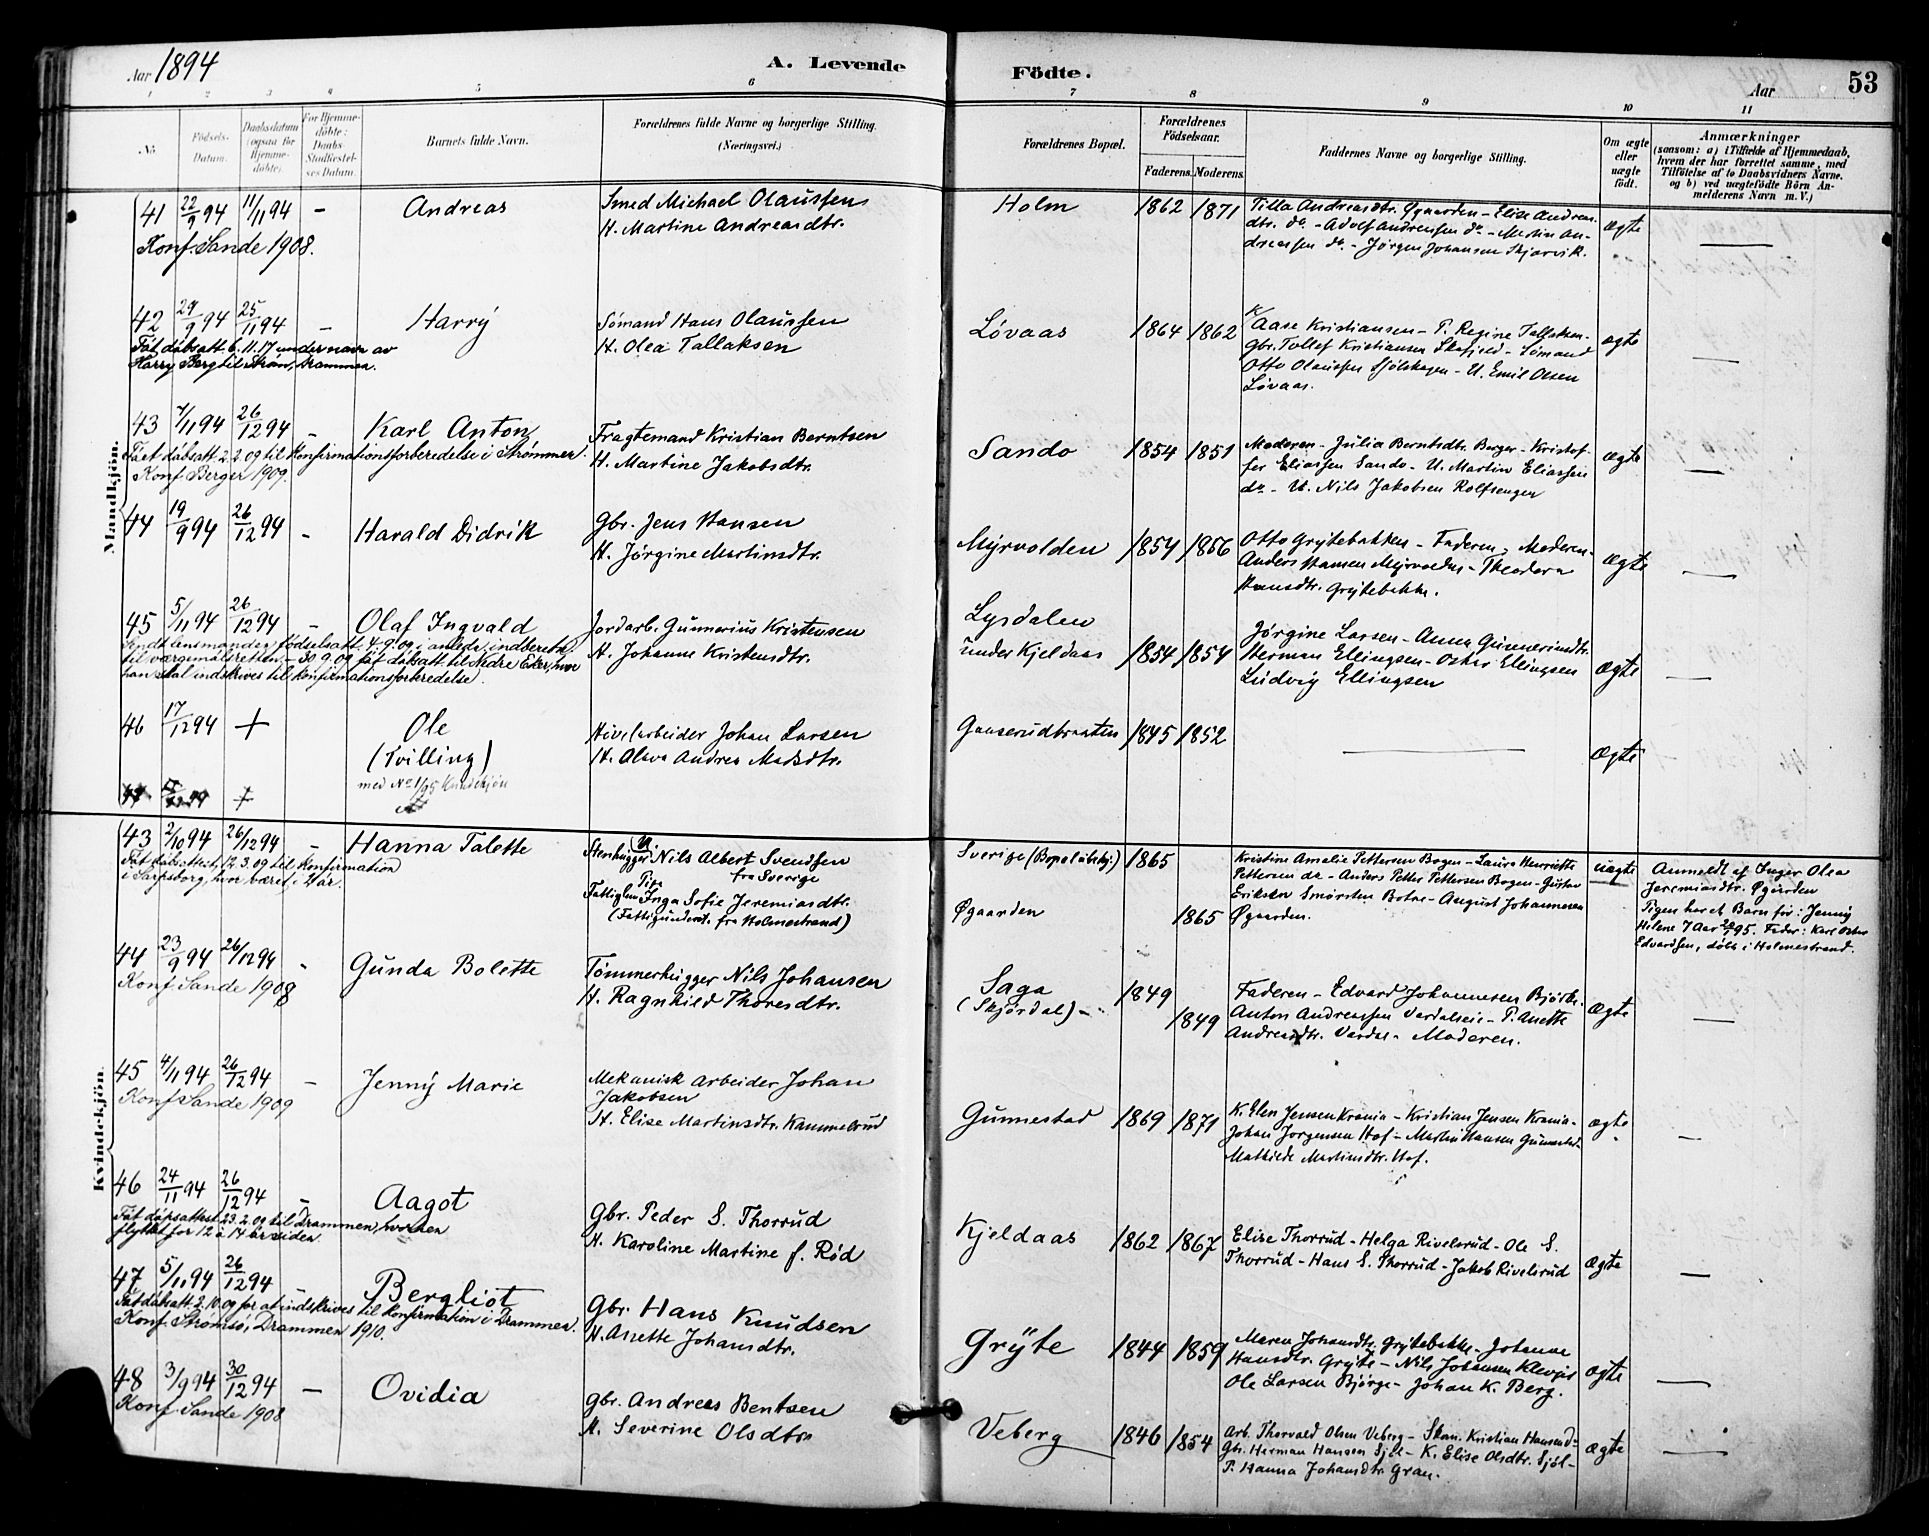 Aar 1894
A. Levende
Födte.
Aar
53
1 2 3 4 5 6 7 8 9 10 11
No
Födsels-Datum.
Daabsdatum (ogsaa for Hjemmedöbte).
For Hjemmedöbte: Daabs-Stadfæstelses Datum.
Barnets fulde Navn.
Forældrenes fulde Navne og borgerlige Stilling.
(Næringsvei.)
Forældrenes Bopæl.
Forældrenes Födselsaar.
Faderens. Moderens.
Faddernes Navne og borgerlige Stilling.
Om ægte eller uægte födt.
Anmærkninger
(saasom: a) i Tilfælde af Hjemmedaab, hvem der har forrettet samme, med Tilföielse af to Daabsvidners Navne. og b) ved uægtefödte Börn Anmelderens Navn m. V.)
Mandkjön.
41 22/9 94 11/11 94 – Andreas
Smed Michael Olaussen
H. Martine Andreasdtr.
Konf. Sande 1908.
Holm 1862 1871
Tilla Andreasdtr. Øgaarden – Elise Andreas-
dtr. do. – Adolf Andreassen do. – Martin An-
dreassen do. – Jørgen Johansen Skjørvik.
ægte
42 29/9 94 25/11 94 – Harry
Sømand Hans Olaussen
H. Olea Tallaksen
Fåt dåbsatt. 6.11.17 under navn av
Harry Berg til Strøm, Drammen.
Løvaas 1864 1862
K. Aase Kristiansen – P. Regine Tallaksen
Gbr. Tollef Kristiansen – Sømand
Otto Olaussen – U. Emil Olsen
Løvaas.
ægte
43 7/11 94 26/12 94 – Karl Anton
Fragtemand Kristian Berntsen
H. Martine Jakobsdtr.
Fået dåbsatt. 2.2.09 til Konfirmationsforberedelse i Strømmen.
Konf. Berger 1909.
Sando 1854 1851
Moderen – Julia Berntsdtr. Berger – Kristof-
fer Eliassen Sando – U. Martin Eliassen
do. – U. Nils Jakobsen Rolfsengen
ægte
44 19/9 94 26/12 94 – Harald Didrik
Gbr. Jens Hansen
H. Jørgine Martinsdtr.
Myrvolden 1854 1856
Otto Grytebakken – Faderen, Moderen –
Anders Hansen Myrvolden – Theodora
Hansdtr. Grytebakke.
ægte
45 5/11 94 26/12 94 – Olaf Ingvald
Jordarb. Gunnerius Kristensen
H. Johanne Kristensdtr.
Sendt lensmanden fødselsatt. 4.9.09 i anledn. indberetn.
til værgemålsretten – 30.9.09 fåt dåbsatt til Nedre Eker, hvor
han skal indskrives til konfirmationsforberedelse.
Lysdalen
under Kjeldaas 1854 1854
Jørgine Larsen – Anna Gunneriusdtr.
Herman Ellingsen – Oskar Ellingsen
Ludvig Ellingsen
ægte
46 17/12 94 + Ole
(Tvilling)
med No 1/95 Kvindekjøn
Høvelarbeider Johan Larsen
H. Olava Andrea Madsdtr.
Gaaserudbraaten 1845 1852
ægte
Kvindekjön.
43 2/10 94 26/12 94 – Hanna Talette
Stenhugger U. Nils Albert Svendsen
fra Sverige
Fattiglem Pige Inga Sofie Jeremiasdtr.
(Fattigunderst. fra Holmestrand)
Fåt dåbsattest 12.3.09 til Konfirmation
i Sarpsborg, hvor været i 2 år.
Sverige (Bopæl ubekj.) 1865
Øgaarden 1865
Kristine Amalie Pettersen Bogen – Laura Henriette
Pettersen do. – Anders Petter Pettersen Bogen – Gustav
Eriksen Smørsten Botne – August Johannesen
Øgaarden.
uægte
Anmeldt af Inger Olea
Jeremiasdtr. Øgaarden
Pigen har et Barn før: Jenny
Helene 7 Aar 95. Fader: Karl Oskar
Edvardsen, døbt i Holmestrand.
44 23/9 94 26/12 94 – Gunda Bolette
Tømmerhugger Nils Johansen
H. Ragnhild Thoresdtr.
Konf. i Sande 1908
Saga
(Skjørdal) – 1849 1849
Faderen – Edvard Johannesen Bjørke
Anton Andreassen Vardalseie – P. Anette
Andreasdtr. Vardal – Moderen.
ægte
45 4/11 94 26/12 94 – Jenny Marie
Mekanisk Arbeider Johan
Jakobsen
H. Elise Martinsdtr. Kammelrud
Konf. Sande 1909
Gunnestad 1869 1871
K. Elen Jensen Krania – Kristian Jensen Krania –
Johan Jørgensen Hof – Martin Hansen Gunnestad –
Mathilde Martinsdtr. Hof.
ægte
46 24/11 94 26/12 94 – Aagot
Gbr. Peder S. Thorrud
H. Karoline Martine f. Rød
Fåt dåpsattest 23.2.09 til Drammen, hvorhen
flyttet for 12 à 14 år siden.
Kjeldaas 1862 1867
Elise Thorrud – Helga Rivelsrud – Ole S.
Thorrud – Hans S. Thorrud – Jakob Rivelsrud
ægte
47 5/11 94 26/12 94 – Bergliot
Gbr. Hans Knudsen
H. Anette Johansdtr.
Fåt dåbsatt. 2.10.09 for at indskrives til konfirmation i Drammen.
Konf. Strømsø, Drammen 1910.
Gryte 1844 1859
Maren Johansdtr. Grytebakke – Johanne
Hansdtr. Gryte – Nils Johansen Klevjer
Ole Larsen Bjørge – Johan K. Berg.
ægte
48 3/9 94 30/12 94 – Ovidia
Gbr. Andreas Bentsen
H. Severine Olsdtr.
Konf. Sande 1908
Veberg 1846 1854
Arb. Thorvald Olsen Veberg – Skom. Kristian Hansen do
Gb. Herman Hansen Sjøl – K. Elise Olsdtr. Sjøl –
P. Hanna Johansdtr. Gran.
ægte